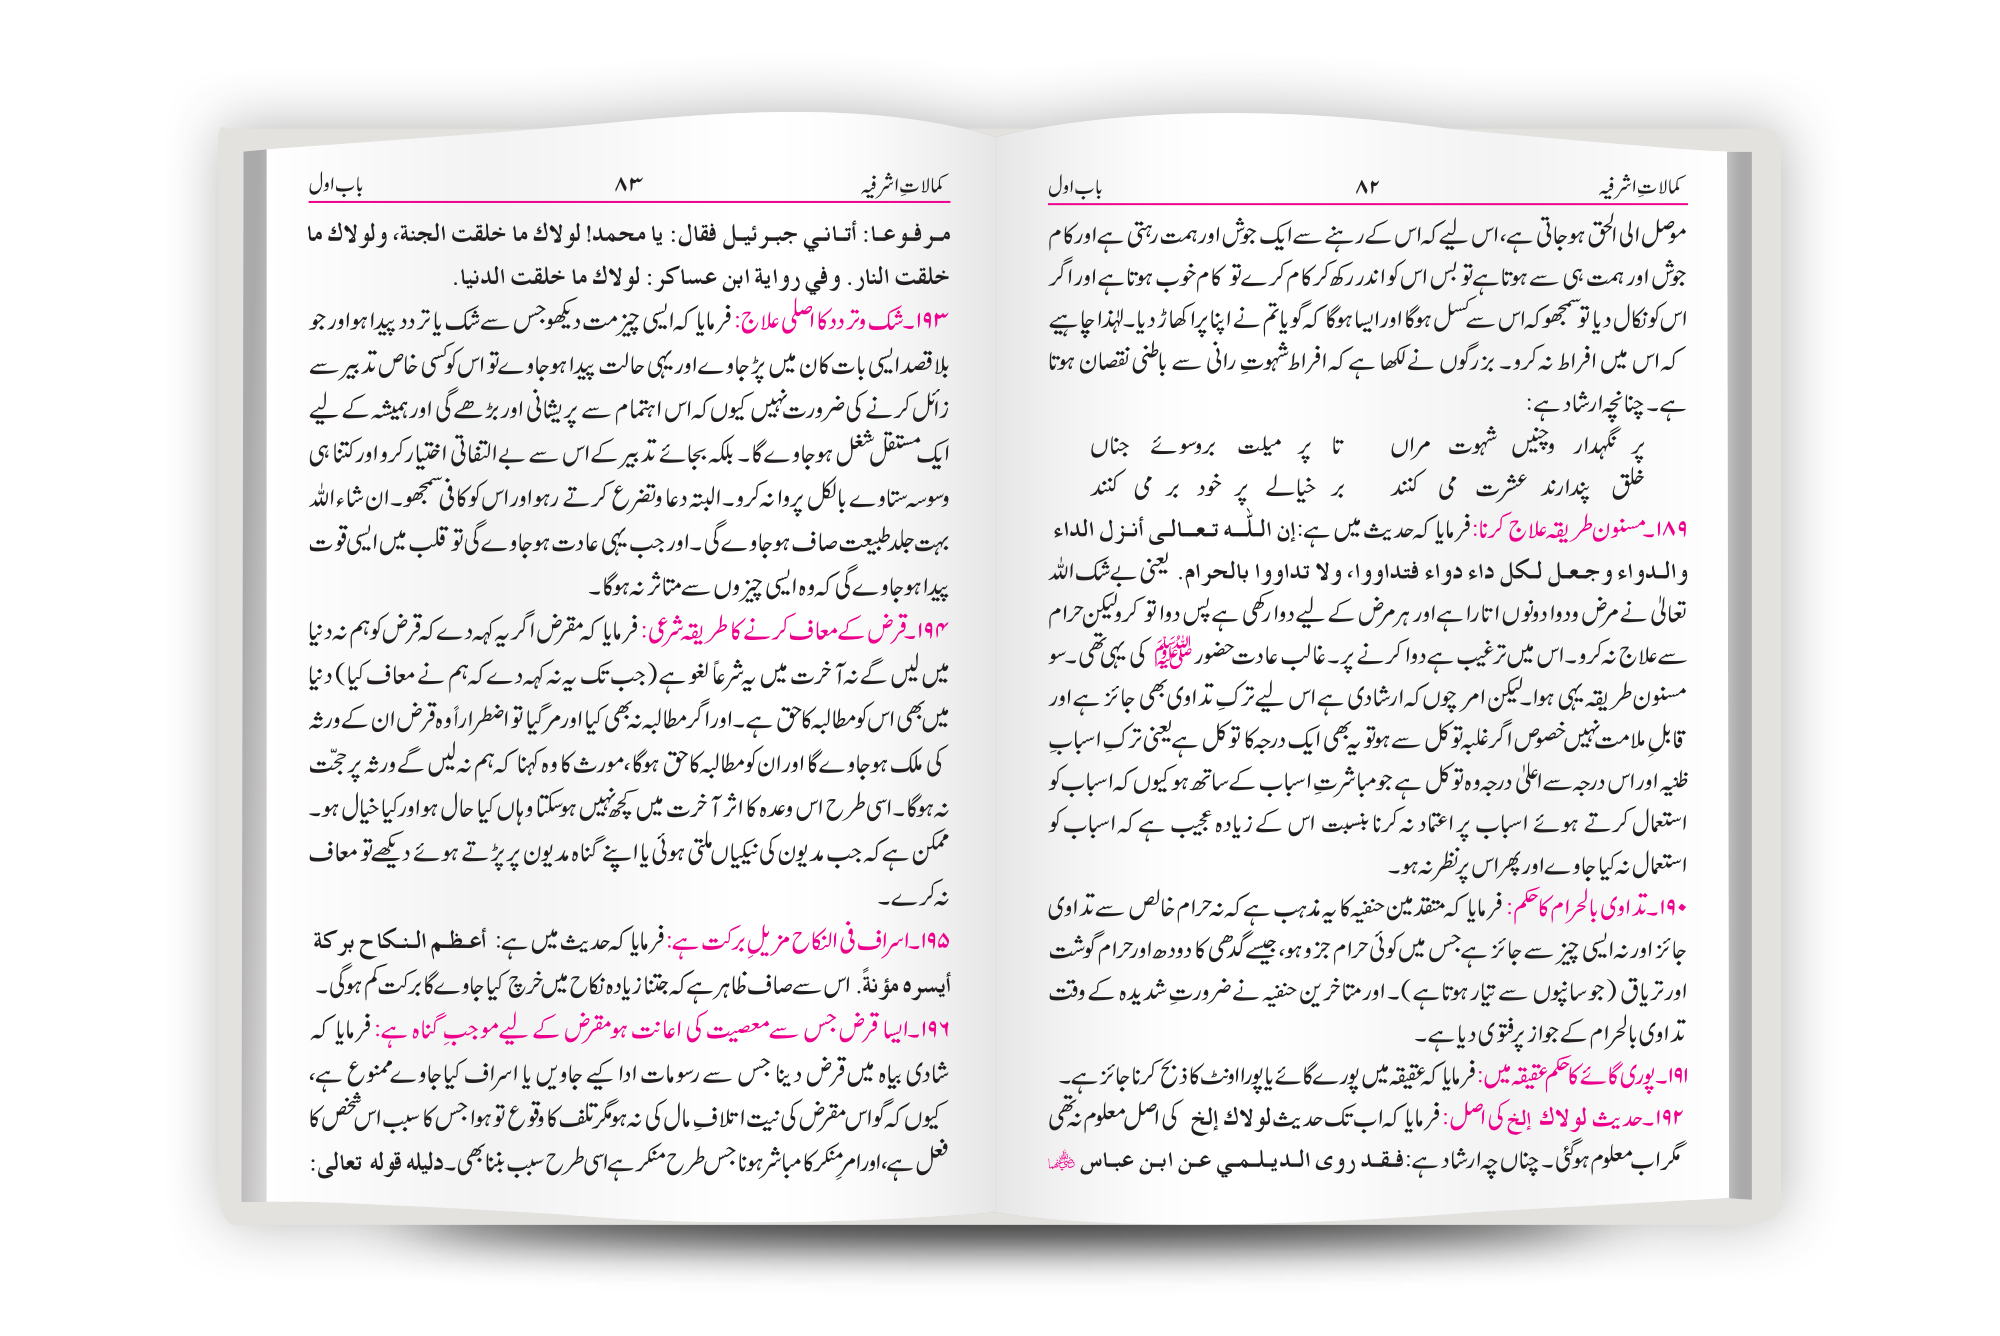 کمالاتِ اشرفیہ ۸۲ باب اول
موصل الی الحق ہوجاتی ہے، اس لیے کہ اس کے رہنے سے ایک جوش اور ہمت رہتی ہے اور کام
جوش اور ہمت ہی سے ہوتا ہے تو بس اس کو اندر رکھ کر کام کرے تو کام خوب ہوتا ہے اور اگر
اس کو نکال دیا تو سمجھو کہ اس سے کسل ہوگا اور ایسا ہوگا کہ گویا تم نے اپنا پر اکھاڑ دیا۔ لہٰذا چاہیے
کہ اس میں افراط نہ کرو۔ بزرگوں نے لکھا ہے کہ افراط شہوتِ رانی سے باطنی نقصان ہوتا
ہے۔ چنانچہ ارشاد ہے:
پر نگہدار وچنیں شہوت مراں تا پر میلت بروسوئے جناں
خلق پندارند عشرت می کنند بر خیالے پر خود بر می کنند
۱۸۹۔مسنون طریقہ علاج کرنا: فرمایا کہ حدیث میں ہے: إن اللّٰه تعالى أنزل الداء
والدواء وجعل لكل داء دواء فتداووا، ولا تداووا بالحرام. یعنی بے شک اللہ
تعالیٰ نے مرض ودوا دونوں اتارا ہے اور ہر مرض کے لیے دوا رکھی ہے پس دوا تو کرو لیکن حرام
سے علاج نہ کرو۔ اس میں ترغیب ہے دوا کرنے پر۔ غالب عادت حضور ﷺ کی یہی تھی۔ سو
مسنون طریقہ یہی ہوا۔ لیکن امر چوں کہ ارشادی ہے اس لیے ترکِ تداوی بھی جائز ہے اور
قابلِ ملامت نہیں خصوص اگر غلبہ توکل سے ہو تو یہ بھی ایک درجہ کا توکل ہے یعنی ترکِ اسبابِ
ظنیہ اور اس درجہ سے اعلیٰ درجہ وہ توکل ہے جو مباشرتِ اسباب کے ساتھ ہو کیوں کہ اسباب کو
استعمال کرتے ہوئے اسباب پر اعتماد نہ کرنا بنسبت اس کے زیادہ عجیب ہے کہ اسباب کو
استعمال نہ کیا جاوے اور پھر اس پر نظر نہ ہو۔
۱۹۰۔تداوی بالحرام کا حکم: فرمایا کہ متقدمین حنفیہ کا یہ مذہب ہے کہ نہ حرام خالص سے تداوی
جائز اور نہ ایسی چیز سے جائز ہے جس میں کوئی حرام جزو ہو، جیسے گدھی کا دودھ اور حرام گوشت
اور تریاق (جو سانپوں سے تیار ہوتا ہے)۔ اور متاخرین حنفیہ نے ضرورتِ شدیدہ کے وقت
تداوی بالحرام کے جواز پر فتوی دیا ہے۔
۱۹۱۔پوری گائے کا حکم عقیقہ میں: فرمایا کہ عقیقہ میں پورے گائے یا پورا اونٹ کا ذبح کرنا جائز ہے۔
۱۹۲۔حدیث لولاك إلخ کی اصل: فرمایا کہ اب تک حدیث لولاك إلخ کی اصل معلوم نہ تھی
مگر اب معلوم ہوگئی۔ چناں چہ ارشاد ہے: فقد روى الديلمي عن ابن عباس رضی اللہ عنہما
کمالاتِ اشرفیہ ۸۳ باب اول
مرفوعا: أتاني جبرئيل فقال: يا محمد! لولاك ما خلقت الجنة، ولولاك ما
خلقت النار. وفي رواية ابن عساكر: لولاك ما خلقت الدنيا.
۱۹۳۔شک وتردد کا اصلی علاج: فرمایا کہ ایسی چیز مت دیکھو جس سے شک یا تردد پیدا ہو اور جو
بلا قصد ایسی بات کان میں پڑ جاوے اور یہی حالت پیدا ہوجاوے تو اس کو کسی خاص تدبیر سے
زائل کرنے کی ضرورت نہیں کیوں کہ اس اہتمام سے پریشانی اور بڑھے گی اور ہمیشہ کے لیے
ایک مستقل شغل ہوجاوے گا۔ بلکہ بجائے تدبیر کے اس سے بے التفاتی اختیار کرو اور کتنا ہی
وسوسہ ستاوے بالکل پروا نہ کرو۔ البتہ دعا وتضرع کرتے رہو اور اس کو کافی سمجھو۔ ان شاء اللہ
بہت جلد طبیعت صاف ہوجاوے گی۔ اور جب یہی عادت ہوجاوے گی تو قلب میں ایسی قوت
پیدا ہوجاوے گی کہ وہ ایسی چیزوں سے متاثر نہ ہوگا۔
۱۹۴۔قرض کے معاف کرنے کا طریقہ شرعی: فرمایا کہ مقرض اگر یہ کہہ دے کہ قرض کو ہم نہ دنیا
میں لیں گے نہ آخرت میں یہ شرعاً لغو ہے (جب تک یہ نہ کہہ دے کہ ہم نے معاف کیا) دنیا
میں بھی اس کو مطالبہ کا حق ہے۔ اور اگر مطالبہ نہ بھی کیا اور مرگیا تو اضطراراً وہ قرض ان کے ورثہ
کی ملک ہوجاوے گا اور ان کو مطالبہ کا حق ہوگا، مورث کا وہ کہنا کہ ہم نہ لیں گے ورثہ پر حجّت
نہ ہوگا۔ اسی طرح اس وعدہ کا اثر آخرت میں کچھ نہیں ہوسکتا وہاں کیا حال ہو اور کیا خیال ہو۔
ممکن ہے کہ جب مدیون کی نیکیاں ملتی ہوئی یا اپنے گناہ مدیون پر پڑتے ہوئے دیکھے تو معاف
نہ کرے۔
۱۹۵۔اسراف فی النکاح مزیلِ برکت ہے: فرمایا کہ حدیث میں ہے: أعظم النكاح بركة
أيسره مؤنةً. اس سے صاف ظاہر ہے کہ جتنا زیادہ نکاح میں خرچ کیا جاوے گا برکت کم ہوگی۔
۱۹۶۔ایسا قرض جس سے معصیت کی اعانت ہو مقرض کے لیے موجبِ گناہ ہے: فرمایا کہ
شادی بیاہ میں قرض دینا جس سے رسومات ادا کیے جاویں یا اسراف کیا جاوے ممنوع ہے،
کیوں کہ گو اس مقرض کی نیت اتلافِ مال کی نہ ہو مگر تلف کا وقوع تو ہوا جس کا سبب اس شخص کا
فعل ہے، اور امرِ منکر کا مباشر ہونا جس طرح منکر ہے اسی طرح سبب بننا بھی۔ دلیله قوله تعالى: